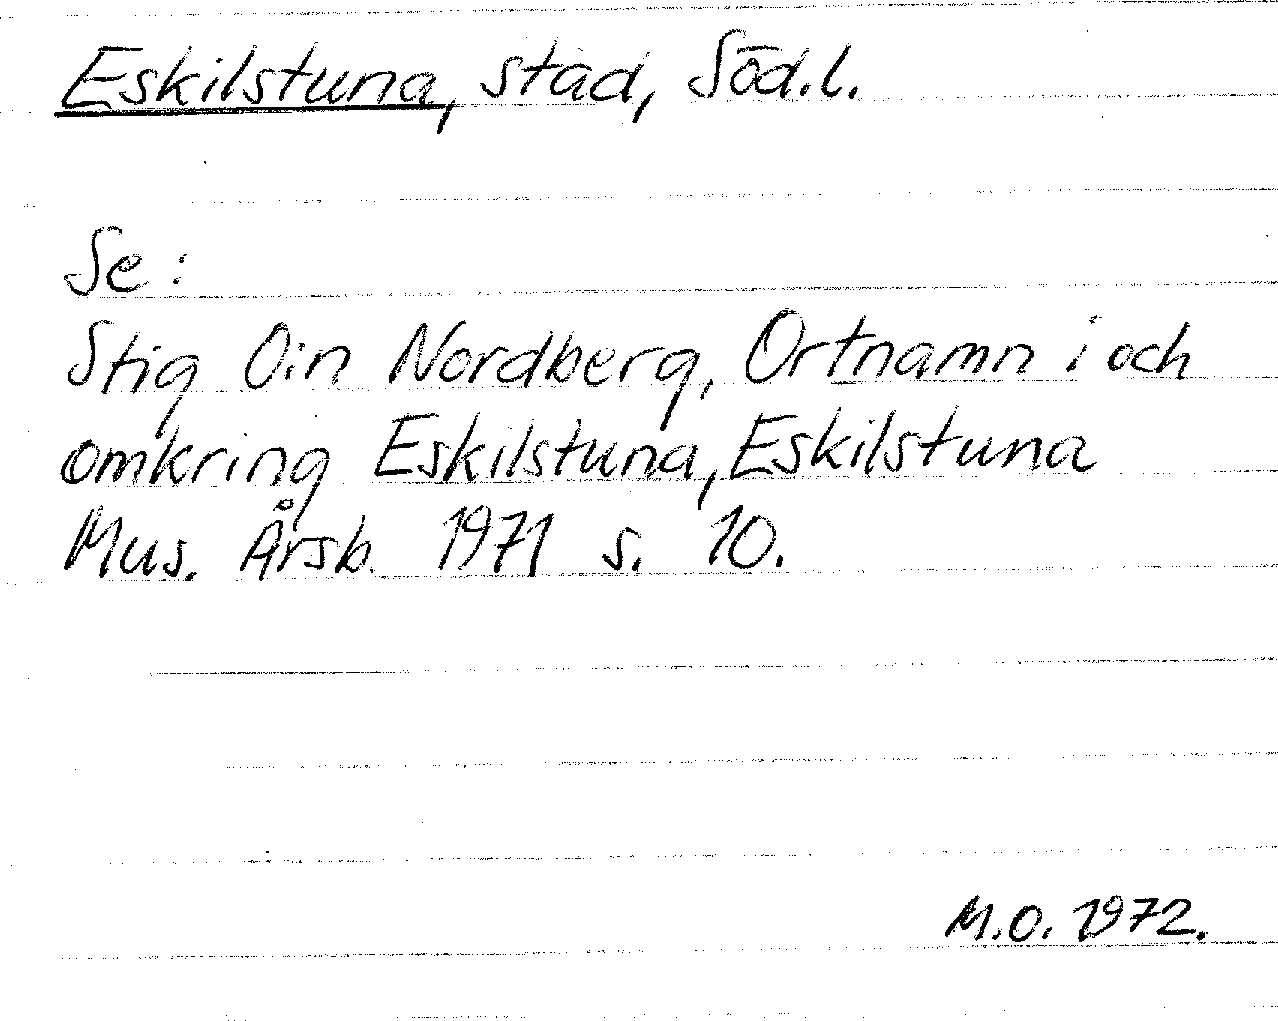 Eskilstuna, stad, Söd.l.
Se:
Stig O:in Nordberg, Ortnamn i och
omkring Eskilstuna, Eskilstuna
Mus. Årsb. 1971 s. 10.
M.O. 1972.